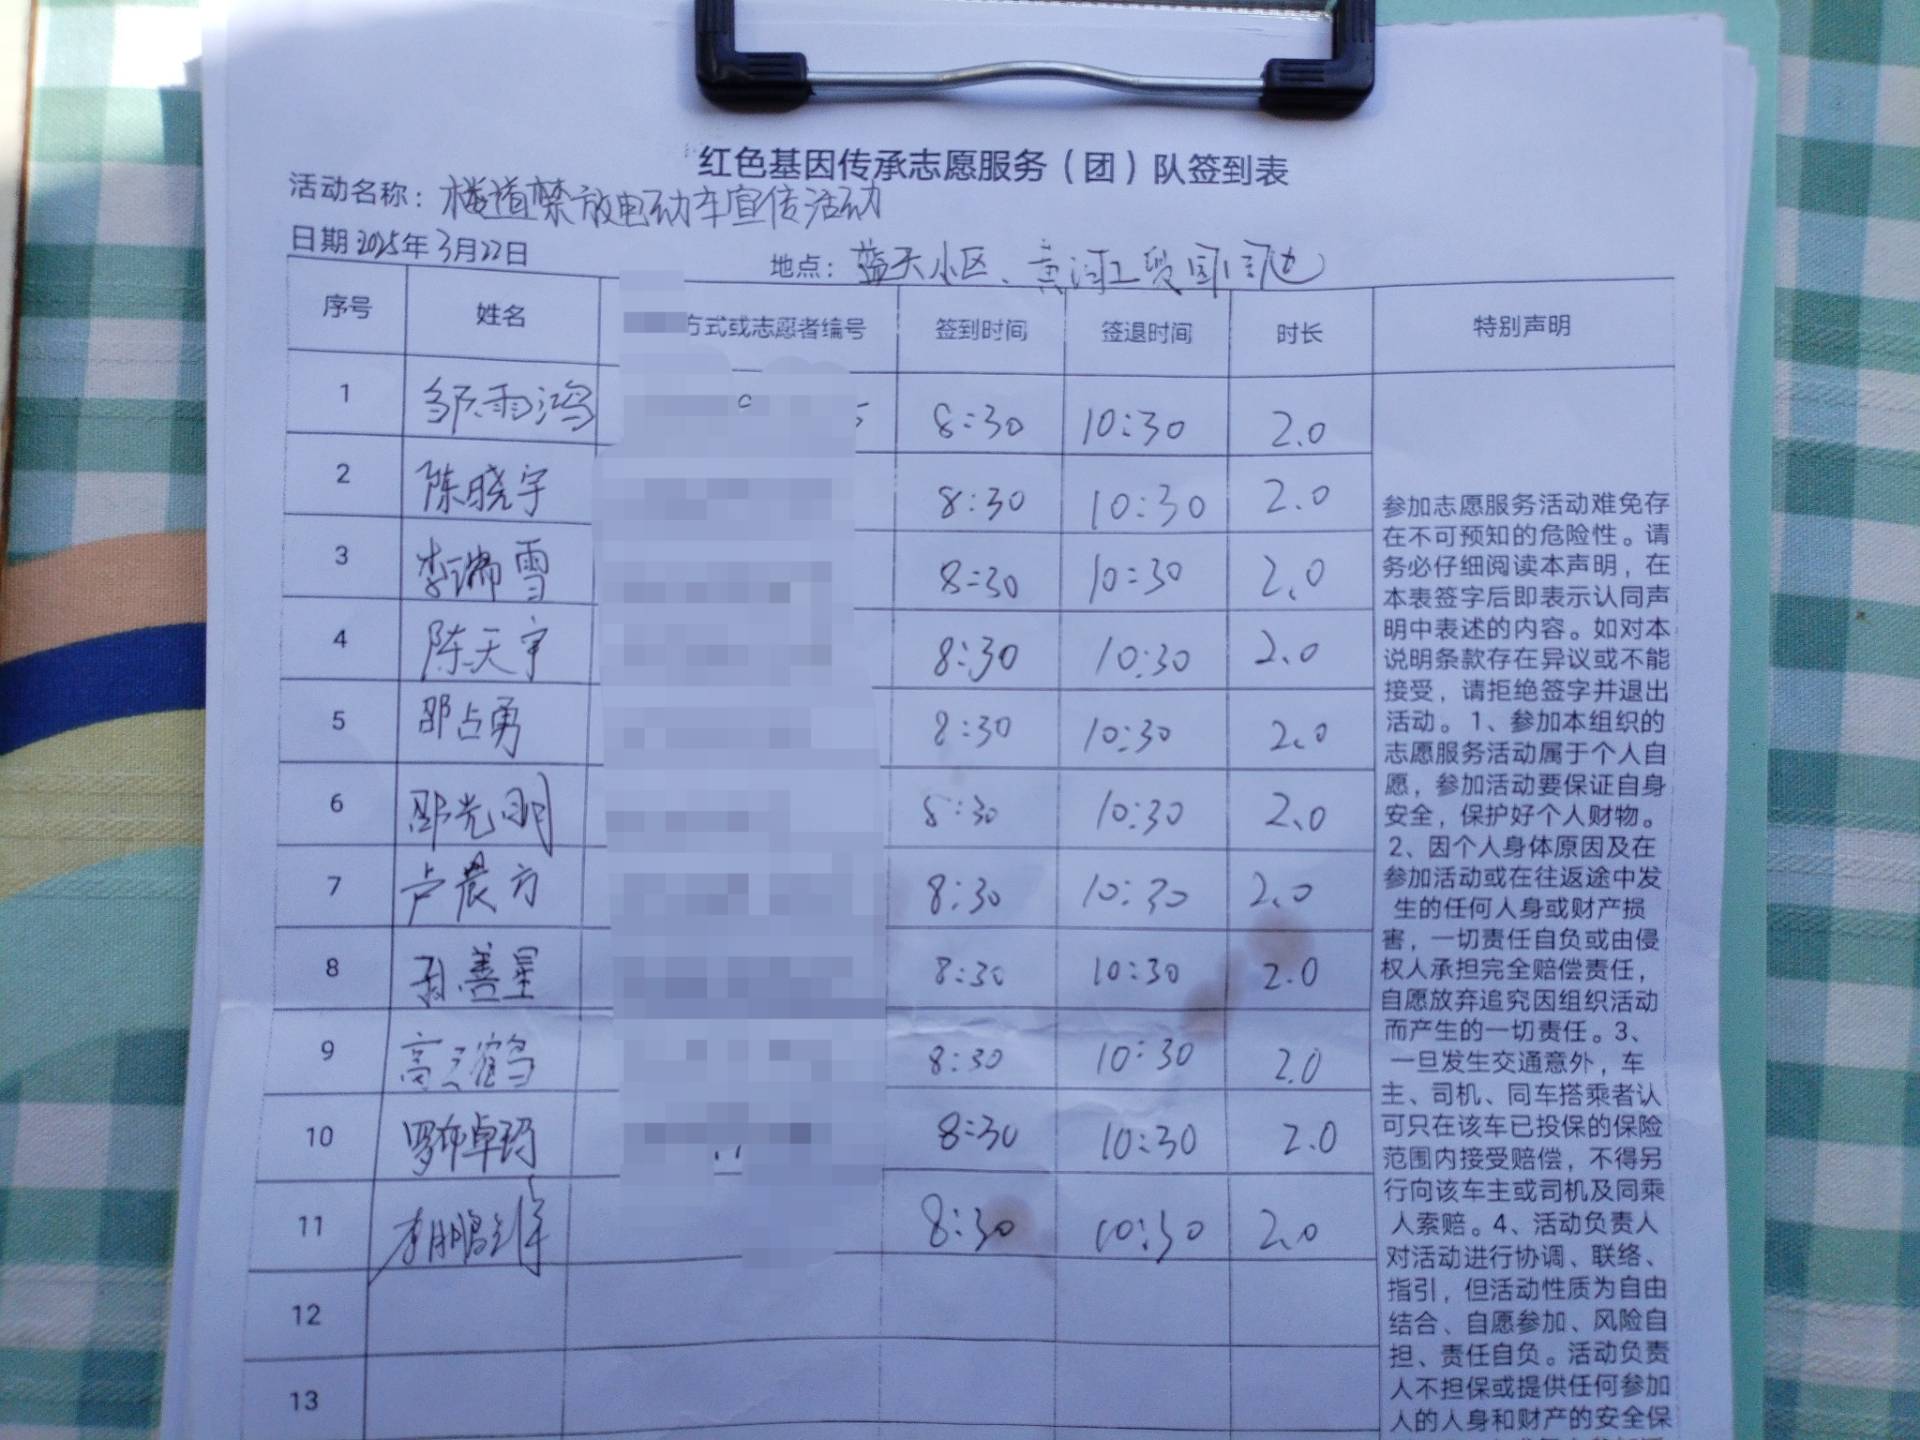 红色基因传承志愿服务（团）队签到表
活动名称：楼道禁放电动车宣传活动
日期 2025年3月22日
地点：蓝天小区、黄河工贸园周边
序号 姓名 方式或志愿者编号 签到时间 签退时间 时长 特别声明
1 邹雨鸿 8:30 10:30 2.0
2 陈晓宇 8:30 10:30 2.0
3 李瑞雪 8:30 10:30 2.0
4 陈天宇 8:30 10:30 2.0
5 邵占勇 8:30 10:30 2.0
6 邵光明 8:30 10:30 2.0
7 卢晨方 8:30 10:30 2.0
8 孙善星 8:30 10:30 2.0
9 高云鹤 8:30 10:30 2.0
10 罗布卓玛 8:30 10:30 2.0
11 李鹏 8:30 10:30 2.0
12
13
参加志愿服务活动难免存
在不可预知的危险性。请
务必仔细阅读本声明，在
本表签字后即表示认同声
明中表述的内容。如对本
说明条款存在异议或不能
接受，请拒绝签字并退出
活动。1、参加本组织的
志愿服务活动属于个人自
愿，参加活动要保证自身
安全，保护好个人财物。
2、因个人身体原因及在
参加活动或在往返途中发
生的任何人身或财产损
害，一切责任自负或由侵
权人承担完全赔偿责任，
自愿放弃追究因组织活动
而产生的一切责任。3、
一旦发生交通意外，车
主、司机、同车搭乘者认
可只在该车已投保的保险
范围内接受赔偿，不得另
行向该车主或司机及同乘
人索赔。4、活动负责人
对活动进行协调、联络、
指引，但活动性质为自由
结合、自愿参加、风险自
担、责任自负。活动负责
人不担保或提供任何参加
人的人身和财产的安全保